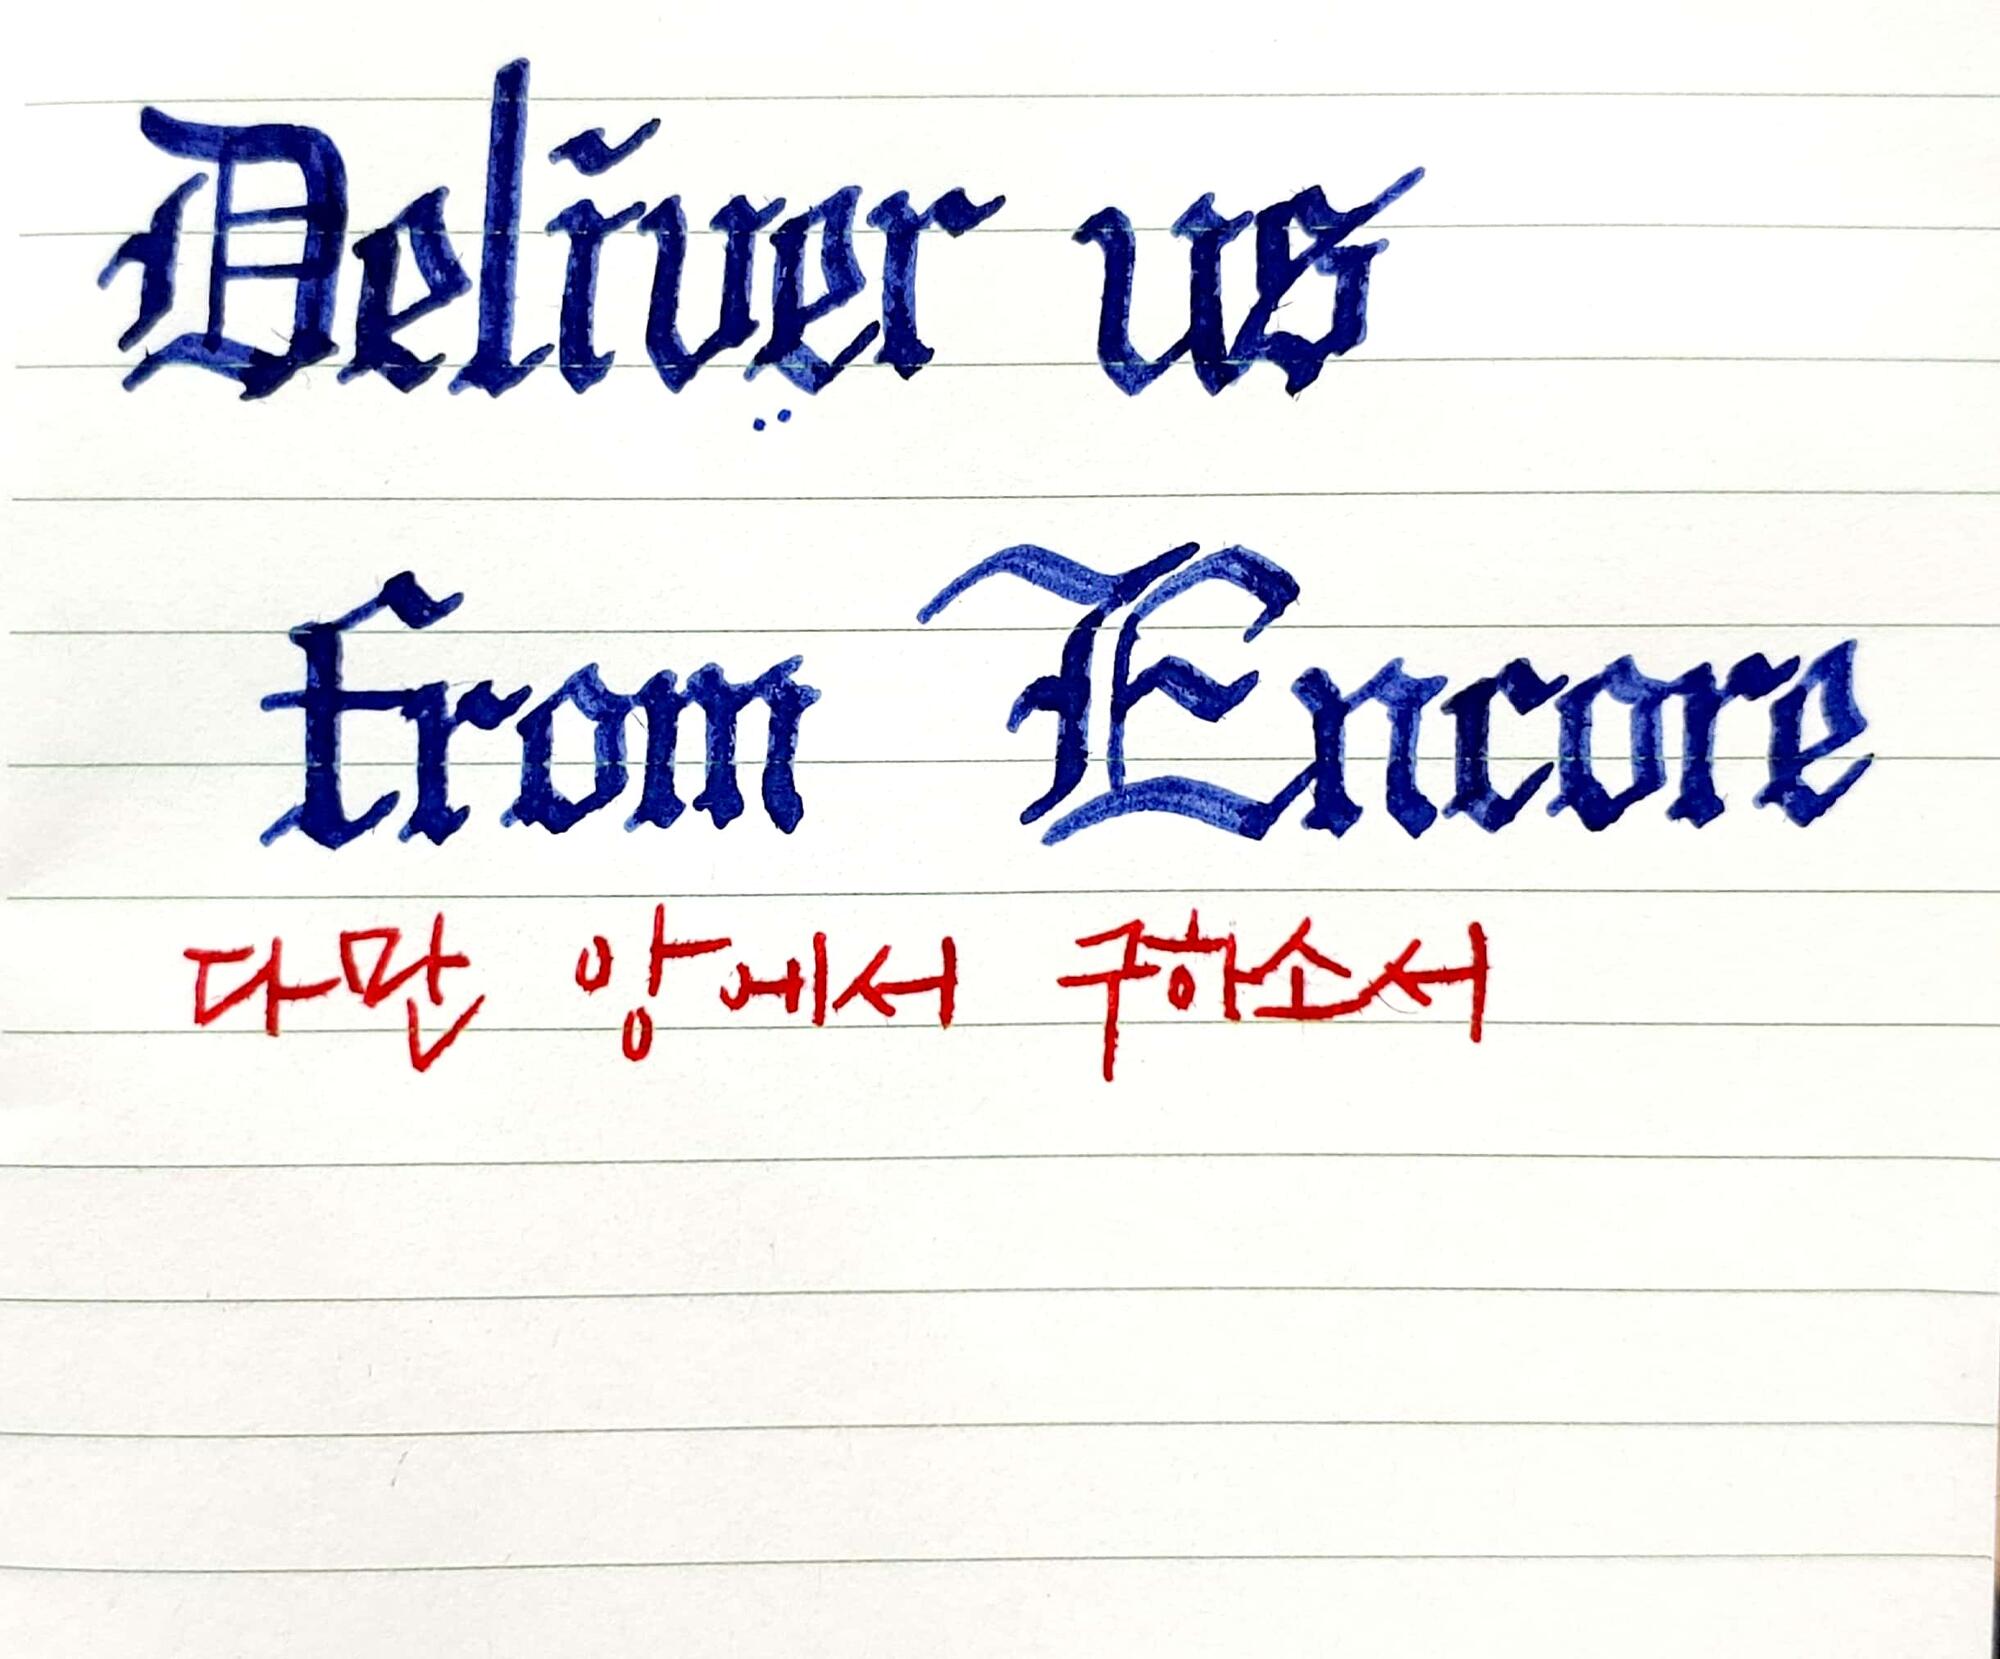 Deliver us
from Encore
다만 앙에서 구하소서